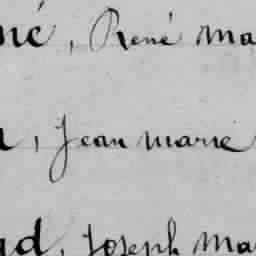 né, René Ma
, Jean marie
d, Joseph Ma